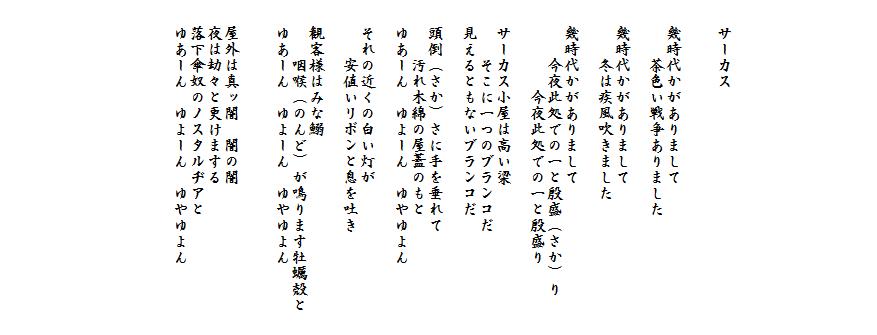 サーカス
幾時代かがありまして
茶色い戦争ありました
幾時代かがありまして
冬は疾風吹きました
幾時代かがありまして
今夜此処での一と殷盛(さか)り
今夜此処での一と殷盛り
サーカス小屋は高い梁
そこに一つのブランコだ
見えるともないブランコだ
頭倒(さか)さに手を垂れて
汚れ木綿の屋蓋のもと
ゆあーん ゆよーん ゆやゆよん
それの近くの白い灯が
安値いリボンと息を吐き
観客様はみな鰯
咽喉(のんど)が鳴ります牡蠣殻と
ゆあーん ゆよーん ゆやゆよん
屋外は真ッ闇 闇の闇
夜は劫々と更けまする
落下傘奴のノスタルヂアと
ゆあーん ゆよーん ゆやゆよん